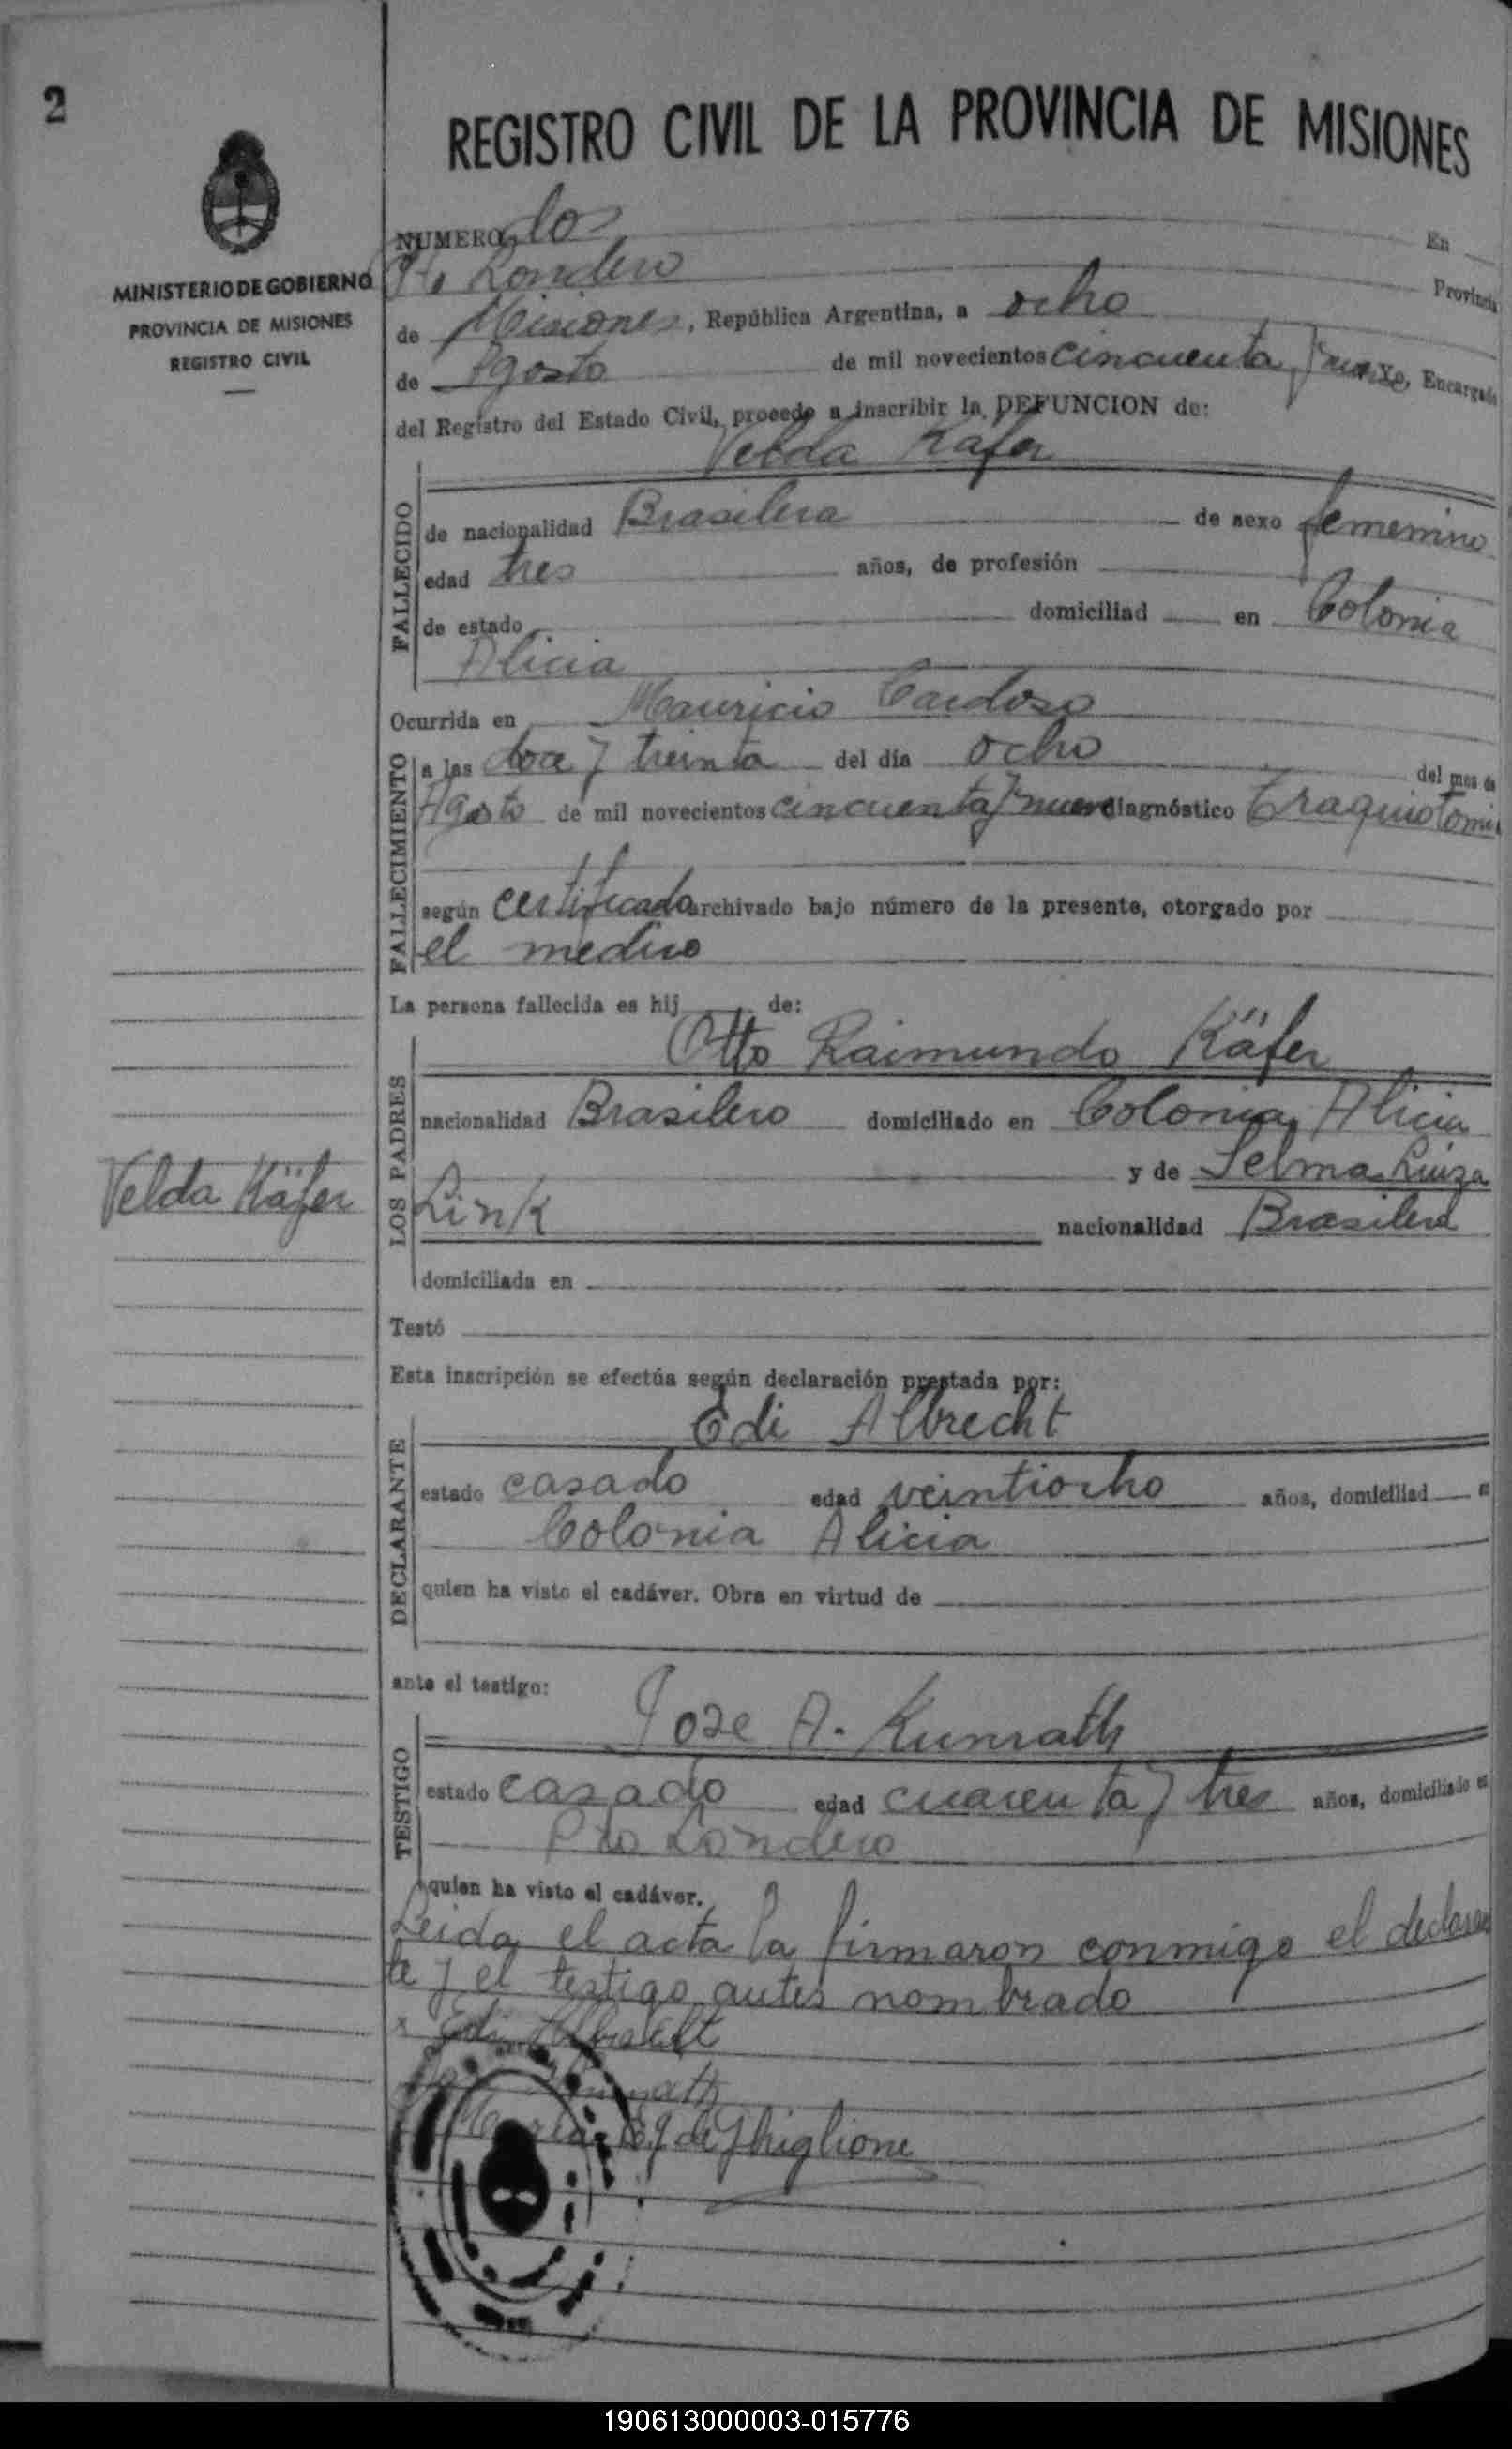 2
REGISTRO CIVIL DE LA PROVINCIA DE MISIONES
MINISTERIO DE GOBIERNO
PROVINCIA DE MISIONES
REGISTRO CIVIL
NUMERO dos En
Pto Londero Provincia
de Misiones, República Argentina, a ocho
de Agosto de mil novecientos cincuenta y nueve, Encargado
del Registro del Estado Civil, procede a inscribir la DEFUNCION de:
Velda Käfer
FALLECIDO
de nacionalidad Brasilera de sexo femenino
edad tres años, de profesión
de estado domiciliad en Colonia
Alicia
Ocurrida en Mauricio Cardoso
FALLECIMIENTO
a las doce y treinta del día ocho del mes de
Agosto de mil novecientos cincuenta y nueve diagnóstico Traquiotomia
según certificado archivado bajo número de la presente, otorgado por
el medico
La persona fallecida es hij de:
LOS PADRES
Otto Raimundo Käfer
nacionalidad Brasilero domiciliado en Colonia Alicia
y de Selma Luiza
Velda Käfer
Link nacionalidad Brasilera
domiciliada en
Testó
Esta inscripción se efectúa según declaración prestada por:
DECLARANTE
Edi Albrecht
estado casado edad veintiocho años, domiciliad
Colonia Alicia
quien ha visto el cadáver. Obra en virtud de
ante el testigo:
TESTIGO
Jose A. Kunrath
estado casado edad cuarenta y tres años, domiciliado en
Pto Londero
quien ha visto el cadáver.
Leida el acta la firmaron conmigo el declaran
te y el testigo antes nombrado
x Edi Albrecht
Kunrath
de Ghiglione
190613000003-015776